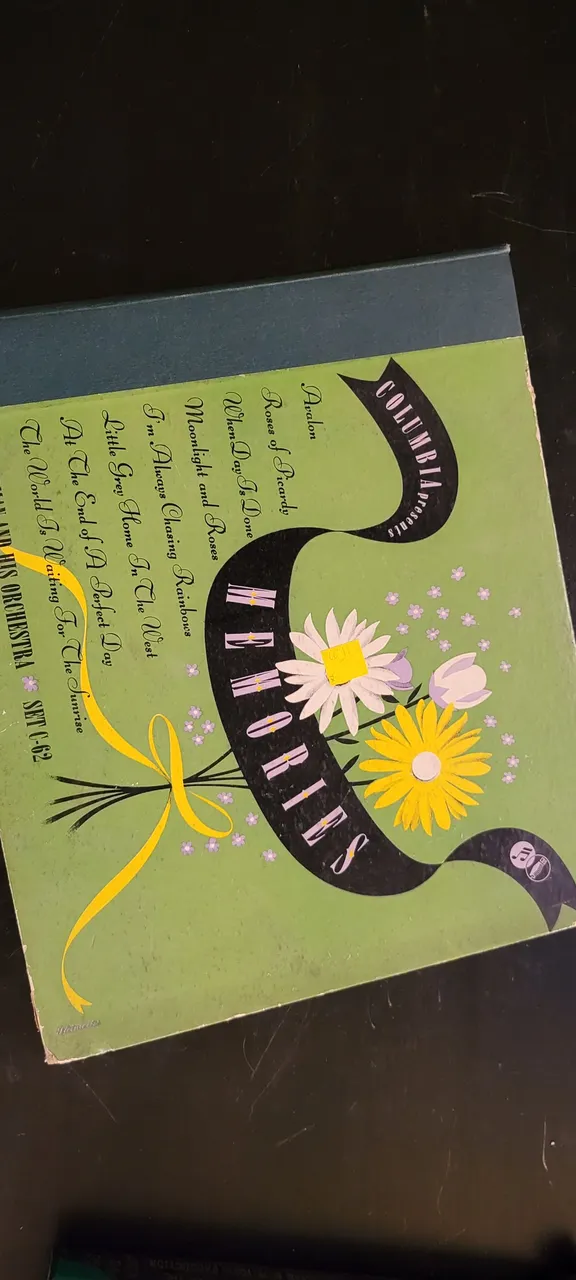 COLUMBIA presents
MEMORIES
Avalon
Roses of Picardy
When Day Is Done
Moonlight and Roses
I'm Always Chasing Rainbows
Little Grey Home In The West
At The End of A Perfect Day
The World Is Waiting For The Sunrise
AND HIS ORCHESTRA SET C-62